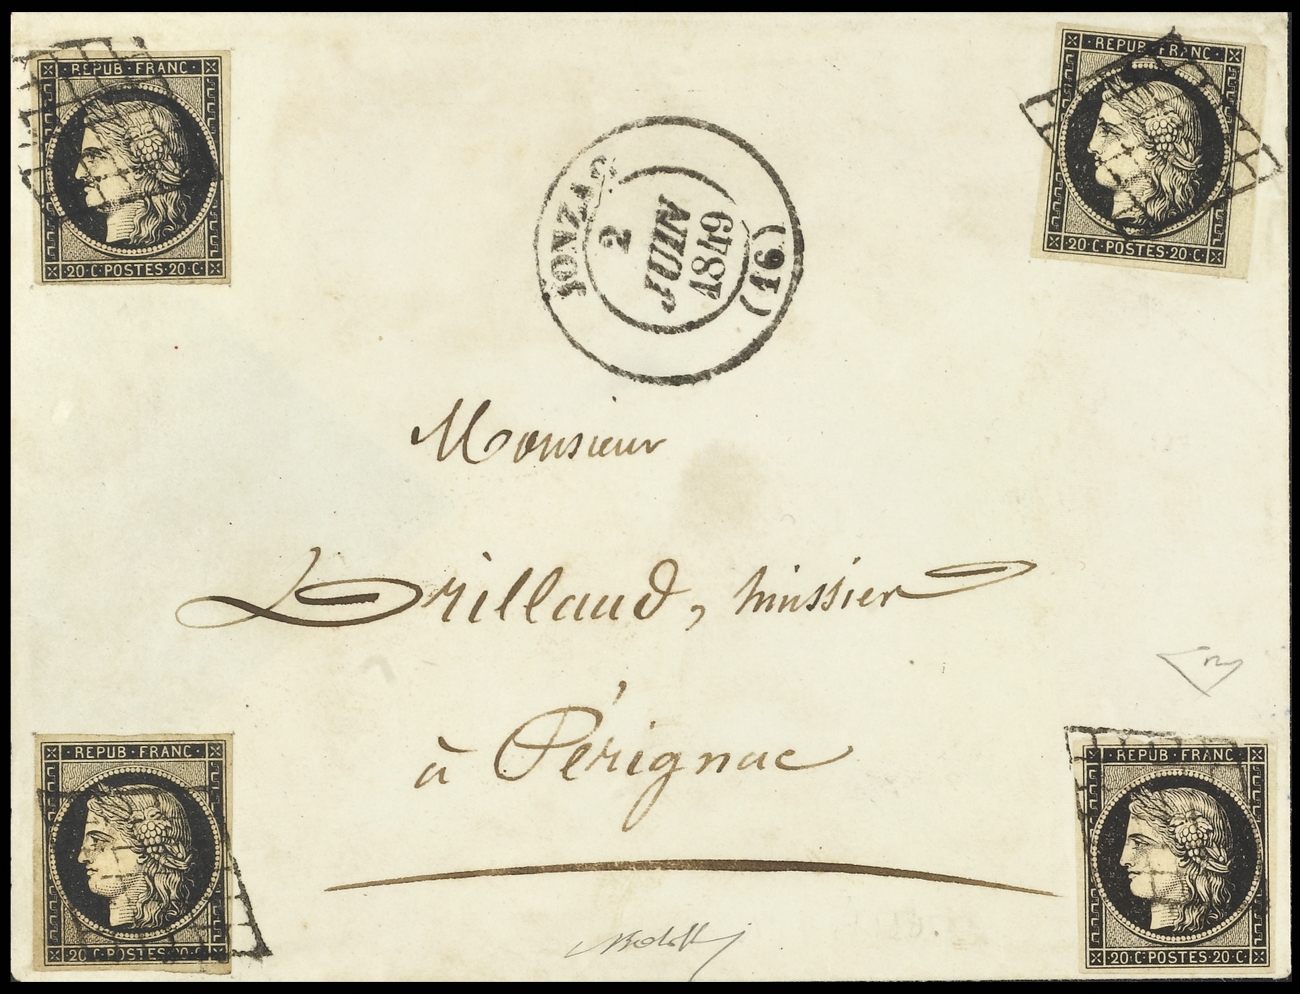 REPUB · FRANC ·
20 · C · POSTES · 20 · C ·
REPUB · FRANC ·
20 · C · POSTES · 20 · C ·
JONZAC
2
JUIN
1849
(16)
Monsieur
Drillaud, huissier
à Pérignac
· REPUB · FRANC ·
20 · C · POSTES · 20 · C ·
· REPUB · FRANC ·
20 · C · POSTES · 20 · C ·